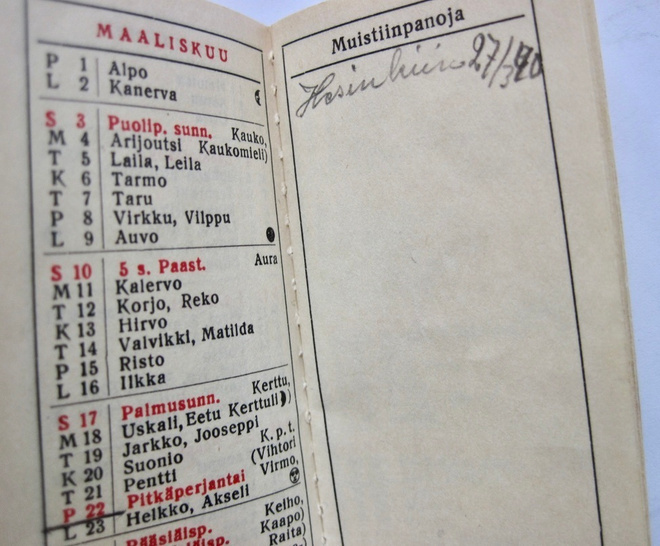 MAALISKUU
P 1 Alpo
L 2 Kanerva
S 3 Puolip. sunn. Kauko,
M 4 Arijoutsi Kaukomieli)
T 5 Laila, Leila
K 6 Tarmo
T 7 Taru
P 8 Virkku, Vilppu
L 9 Auvo
S 10 5 s. Paast. Aura
M 11 Kalervo
T 12 Korjo, Reko
K 13 Hirvo
T 14 Valvikki, Matilda
P 15 Risto
L 16 Ilkka
S 17 Palmusunn. Kerttu,
M 18 Uskali, Eetu Kerttuli)
T 19 Jarkko, Jooseppi
K 20 Suonio K. p. t.
T 21 Pentti (Vihtori
P 22 Pitkäperjantai Virmo,
L 23 Heikko, Akseli
Pääsiäisp. Kelho,
Kaapo)
Raita)
Muistiinpanoja
27/3 40